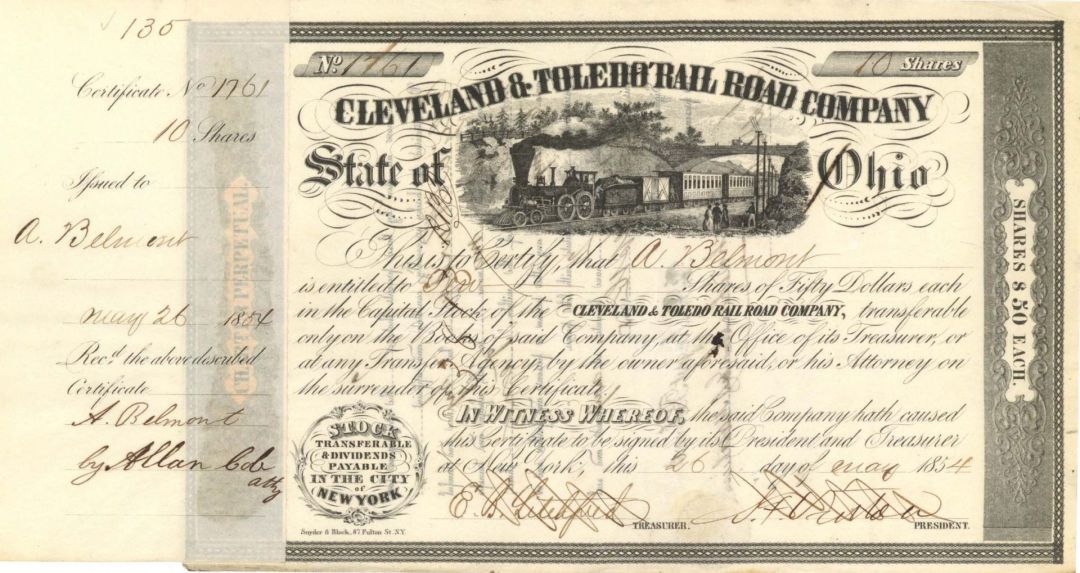 135
Certificate No 1761
10 Shares
Issued to
A. Belmont
May 26 1854
Rec.d the above described
Certificate
A. Belmont
by Allan
atty
CHARTER PERPETUAL
No. 1761
10 Shares
CLEVELAND & TOLEDO RAIL ROAD COMPANY
State of Ohio
This is to Certify, that A. Belmont
is entitled to Ten Shares of Fifty Dollars each
in the Capital Stock of the CLEVELAND & TOLEDO RAIL ROAD COMPANY, transferable
only on the Books of said Company, at the Office of its Treasurer, or
at any Transfer Agency, by the owner aforesaid, or his Attorney on
the surrender of this Certificate,
IN WITNESS WHEREOF, the said Company hath caused
this Certificate to be signed by its President and Treasurer
at New York, this 26 day of May 1854
TREASURER.
PRESIDENT.
STOCK
TRANSFERABLE
& DIVIDENDS
PAYABLE
IN THE CITY
of
NEW YORK
Snyder & Black, 87 Fulton St. N.Y.
SHARES $50 EACH.